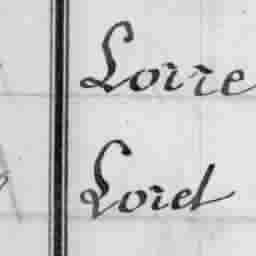 Lorre
Loret